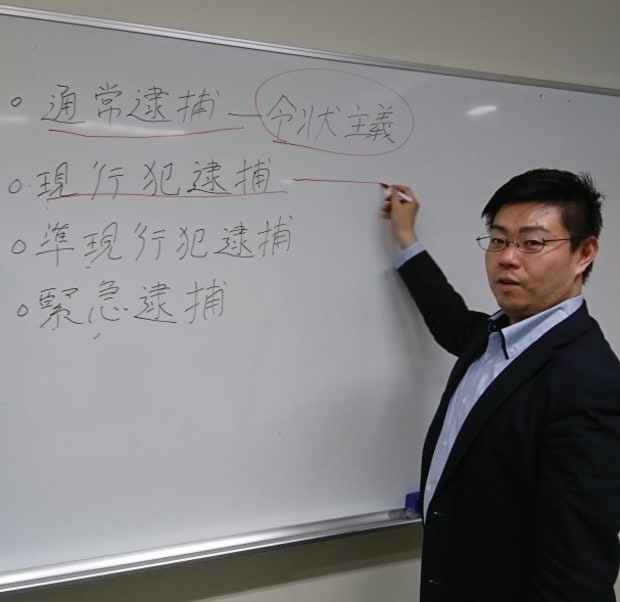 ○ 通常逮捕 — 令状主義
○ 現行犯逮捕 —
○ 準現行犯逮捕
○ 緊急逮捕